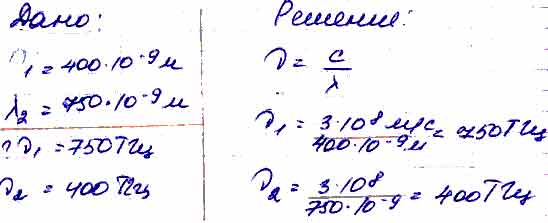 Дано:
λ₁ = 400·10⁻⁹ м
λ₂ = 750·10⁻⁹ м
? ν₁ = 750 ТГц
ν₂ = 400 ТГц
Решение:
ν = c/λ
ν₁ = 3·10⁸ м/с / 400·10⁻⁹ м = 750 ТГц
ν₂ = 3·10⁸ / 750·10⁻⁹ = 400 ТГц